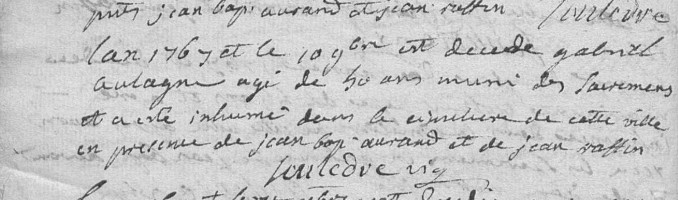 nts jean bap. aurand et jean raffin
lan 1767 et le 10 9bre est decede gabriel
aulagne agé de 50 ans muni des sacremens
et a esté inhumé dans le cimetiere de cette ville
en presence de jean bap. aurand et de jean raffin
vic